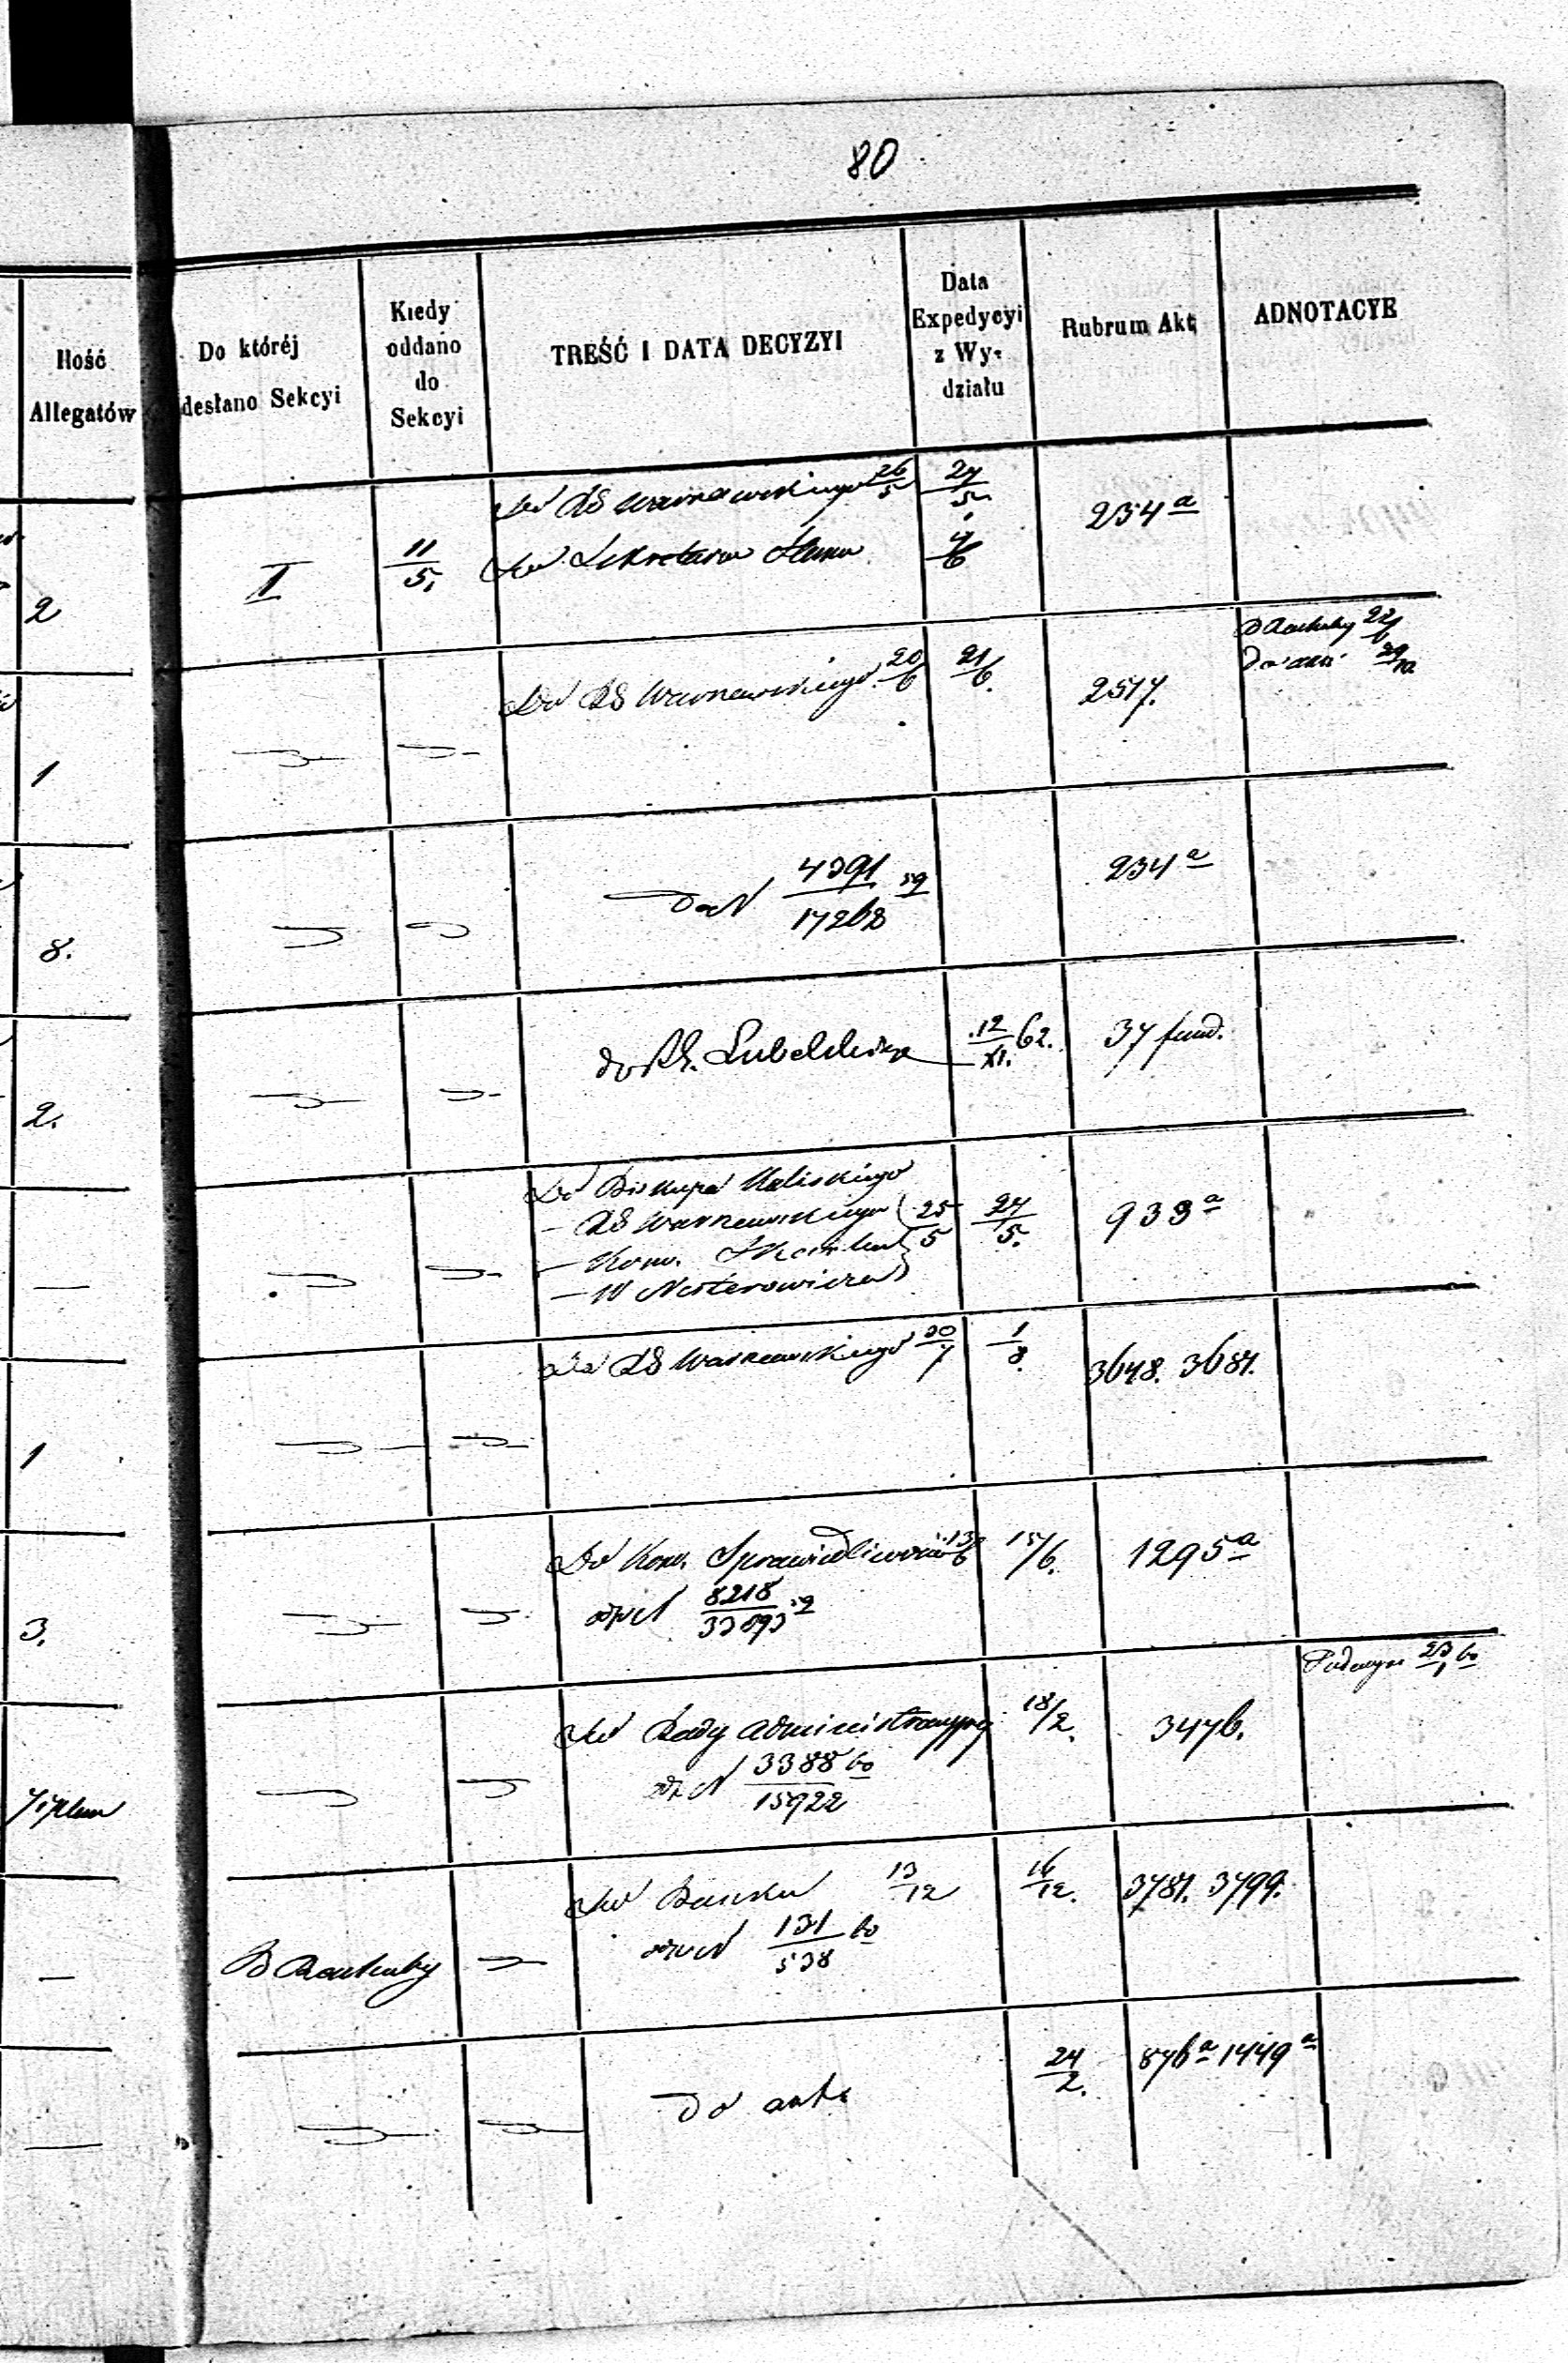 80
Ilość
Allegatów
Do któréj
desłano Sekcyi
Kiedy
oddano
do
Sekcyi
TREŚĆ I DATA DECYZYI
Data
Expedycyi
z Wy-
działu
Rubrum Akt
ADNOTACYE
2
II
11/5.
Do RG Warszawskiego 26/5
Do Sekretarza Stanu
27/5.
4/6
234 a
1
Do RG Warszawskiego 20/6
21/6.
2517.
22/6
Do akt 29/10
8.
do N 4391/17262 59
234 a
2.
do Rz. Lubelskiego
12/XI. 62.
37 fund.
—
Do Biskupa Kaliskiego
— RG Warszawskiego 25/5
— Kom. Skarbu
— W Nesterowicza
27/5.
933 a
1
Do RG Warszawskiego 30/7
1/8.
3648. 3681.
3.
Do Kom. Sprawiedliwości 13/6
odp N 8218/33893 59
15/6.
1295 a
Do Rady Administracyjnej
odp N 3388/15922 60
18/2.
347b.
23/1 60
—
B Rachuby
Do Banku 13/12
odp N 131/538 60
16/12.
3781. 3799.
—
Do akt
24/2.
876 a 1449 a